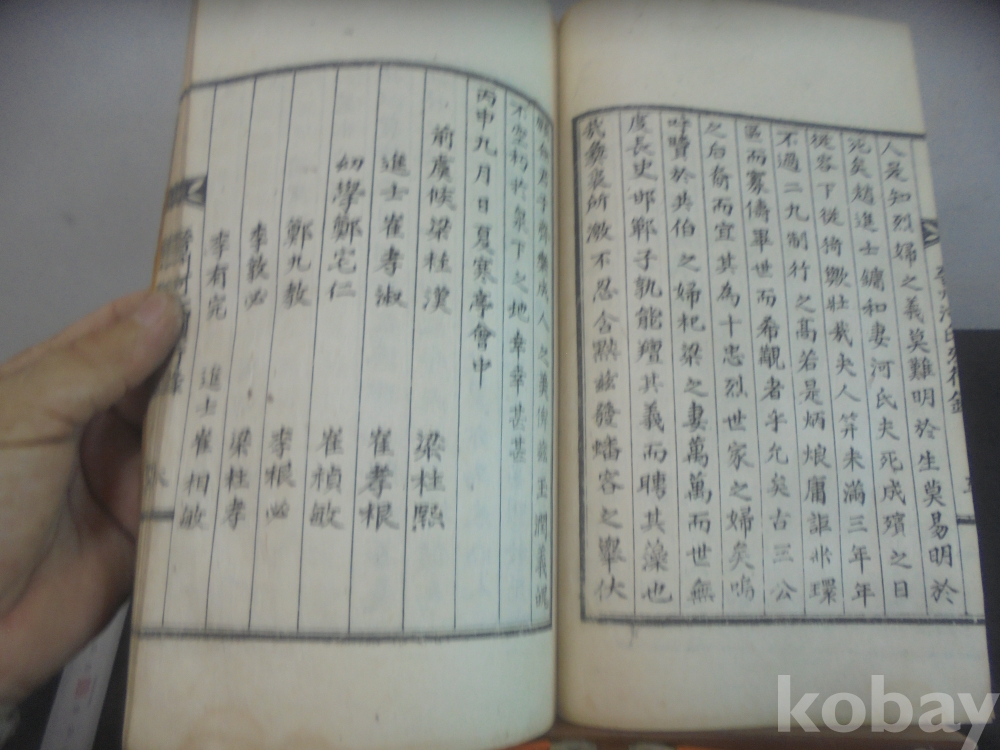 人是知烈婦之義莫難明於生莫易明於
死矣趙進士鏞和妻河氏夫死成殯之日
從容下從猗歟壯哉夫人笄未滿三年年
不過二九制行之高若是炳烺庸詎非環
區而寡儔畢世而希覯者乎允矣古三公
之后裔而宜其為十忠烈世家之婦矣嗚
呼賢於共伯之婦杞梁之妻萬萬而世無
度長史邯鄲子孰能擅其義而騁其藻也
哉彝衷所激不忍含默玆發蟠容之舉伏
成人之美
不空朽於泉下之地幸幸甚甚
丙申九月日夏寒亭會中
前虞候梁柱漢 梁柱熙
進士崔孝淑 崔孝根
幼學鄭宅仁 崔禎敏
鄭九教 李根必
李敦必 梁柱孝
李有完 進士崔相敏
kobay